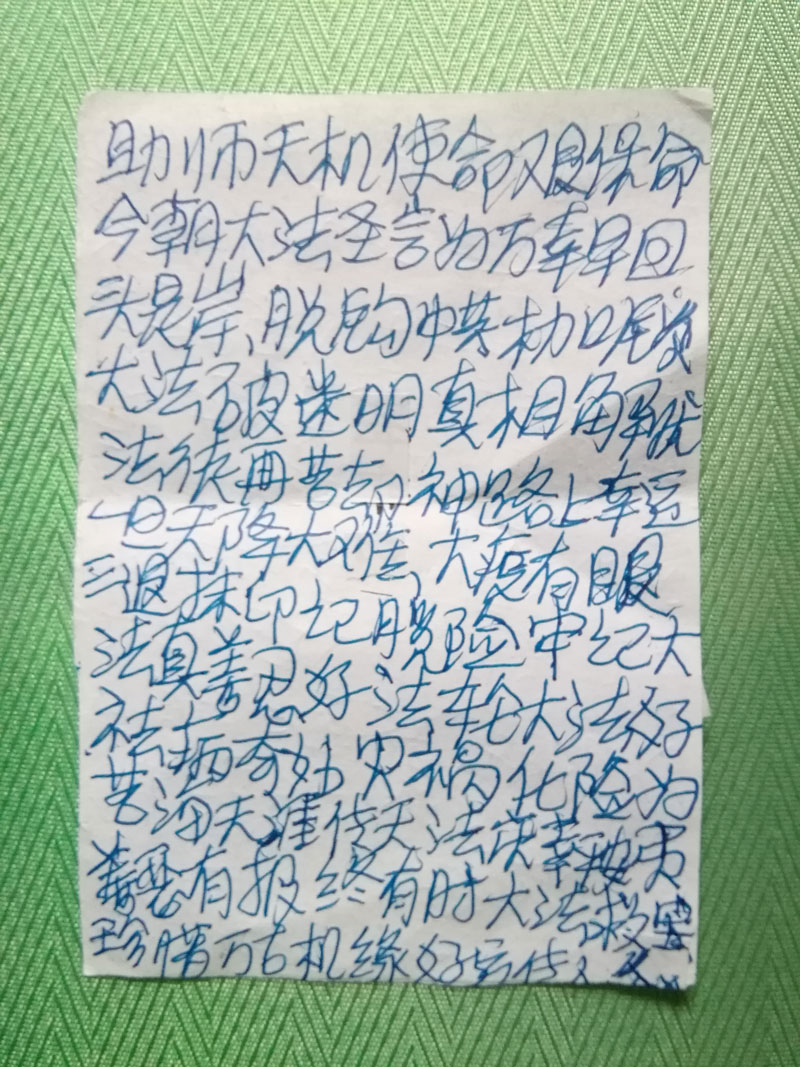 助师天机使命又是保命
今朝大法圣言为方幸早回
头是岸、脱钩中共
大法破迷明真相解
法徒再苦 神路上幸运
一旦天降大难、大疫有眼
三退抹印记脱险中记大
法真善忍好法轮大法好
祛病奇妙灾祸化险为
苦海天涯传天法
恶有报终有时大法救
珍惜万古机缘好